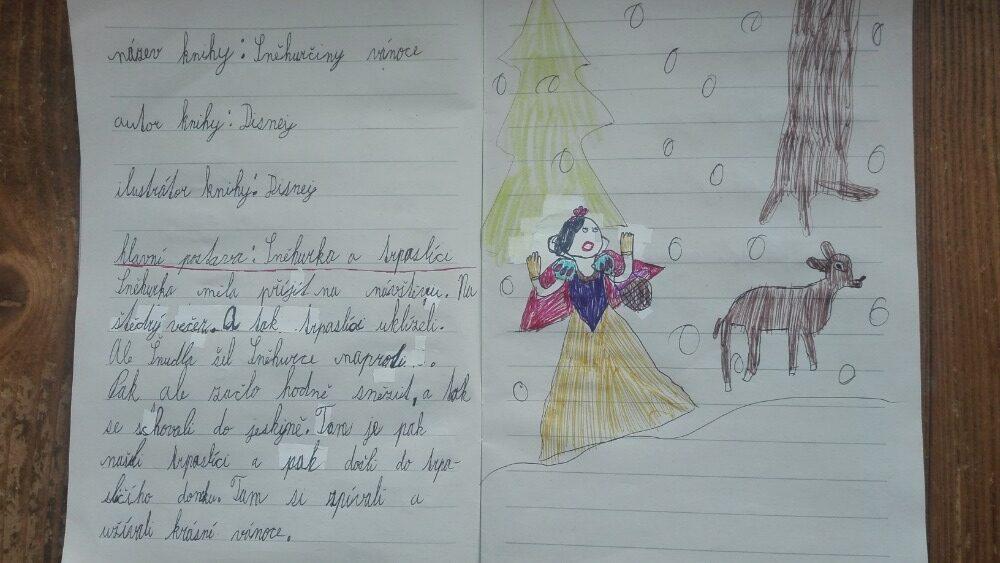 název knihy: Sněhurčiny vánoce
autor knihy: Disney
ilustrátor knihy: Disney
hlavní postava: Sněhurka a trpaslíci
Sněhurka měla přijít na návštěvu. Na
štědrý večer. A tak trpaslíci uklízeli.
Ale Šmudla šel Sněhurce naproti...
Pak ale začlo hodně sněžit, a tak
se schovali do jeskyně. Tam je pak
našli trpaslíci a pak došli do trpa-
sličího domku. Tam si zpívali a
užívali krásné vánoce.